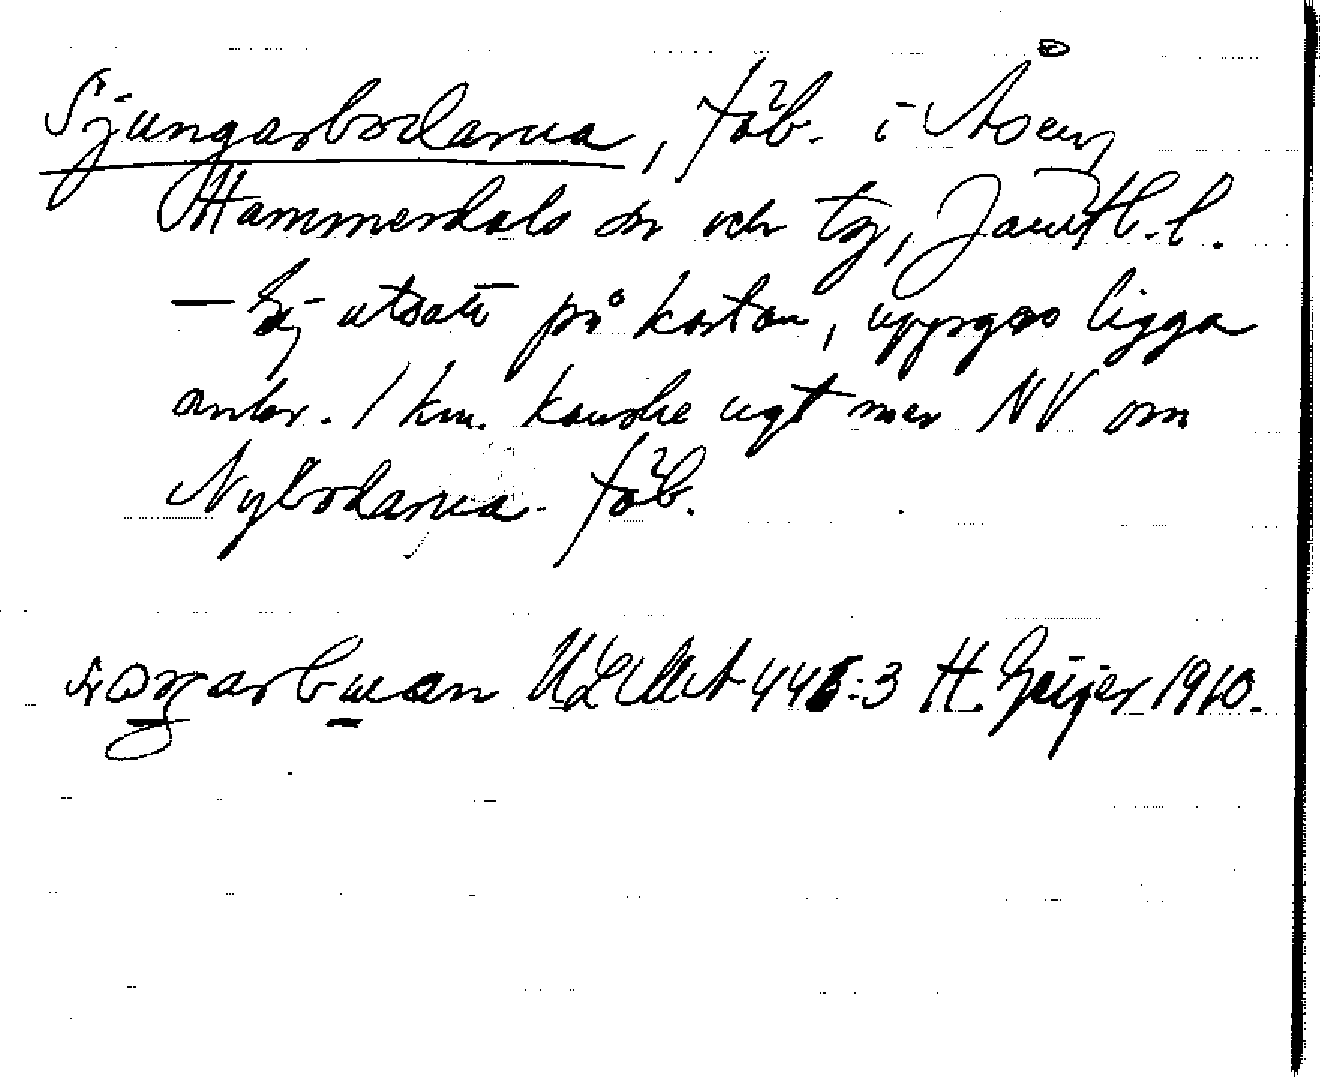 Sjungarbodarna, fäb. i Åsen,
Hammerdals sn och tg, Jämtl. l.
— Ej utsatt på kartan, uppges ligga
antr. 1 km. kanske ngt mer NV om
Nybodarna fäb.
H. Geijer 1910.